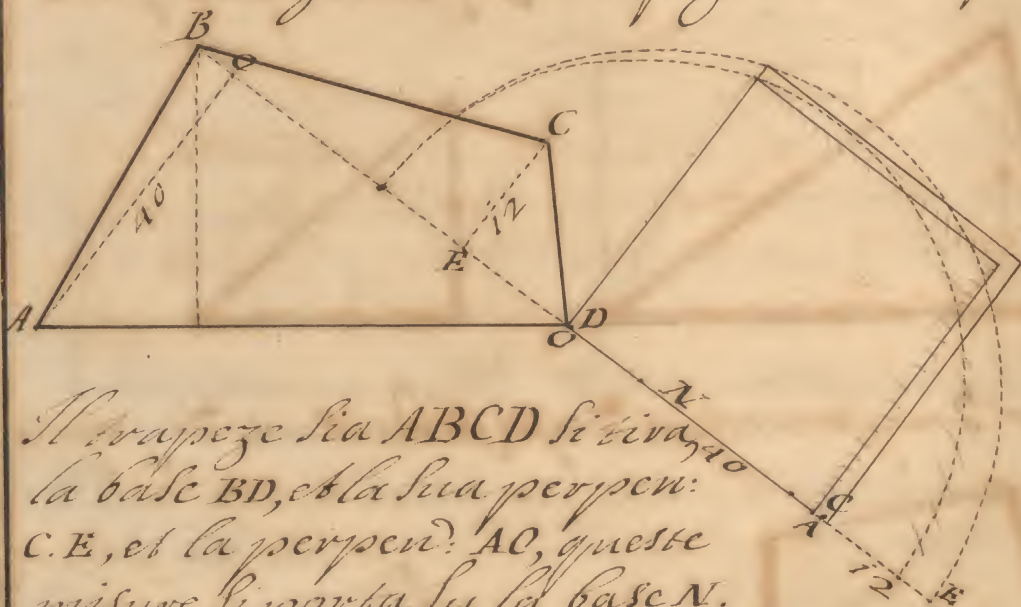 B
O
C
40
12
E
A
D
O
N
40
A
C
12
E
Il trapeze sia ABCD si tira,
la base BD, et la sua perpen:
C.E, et la perpen: AO, queste
misure si porta su la base N.